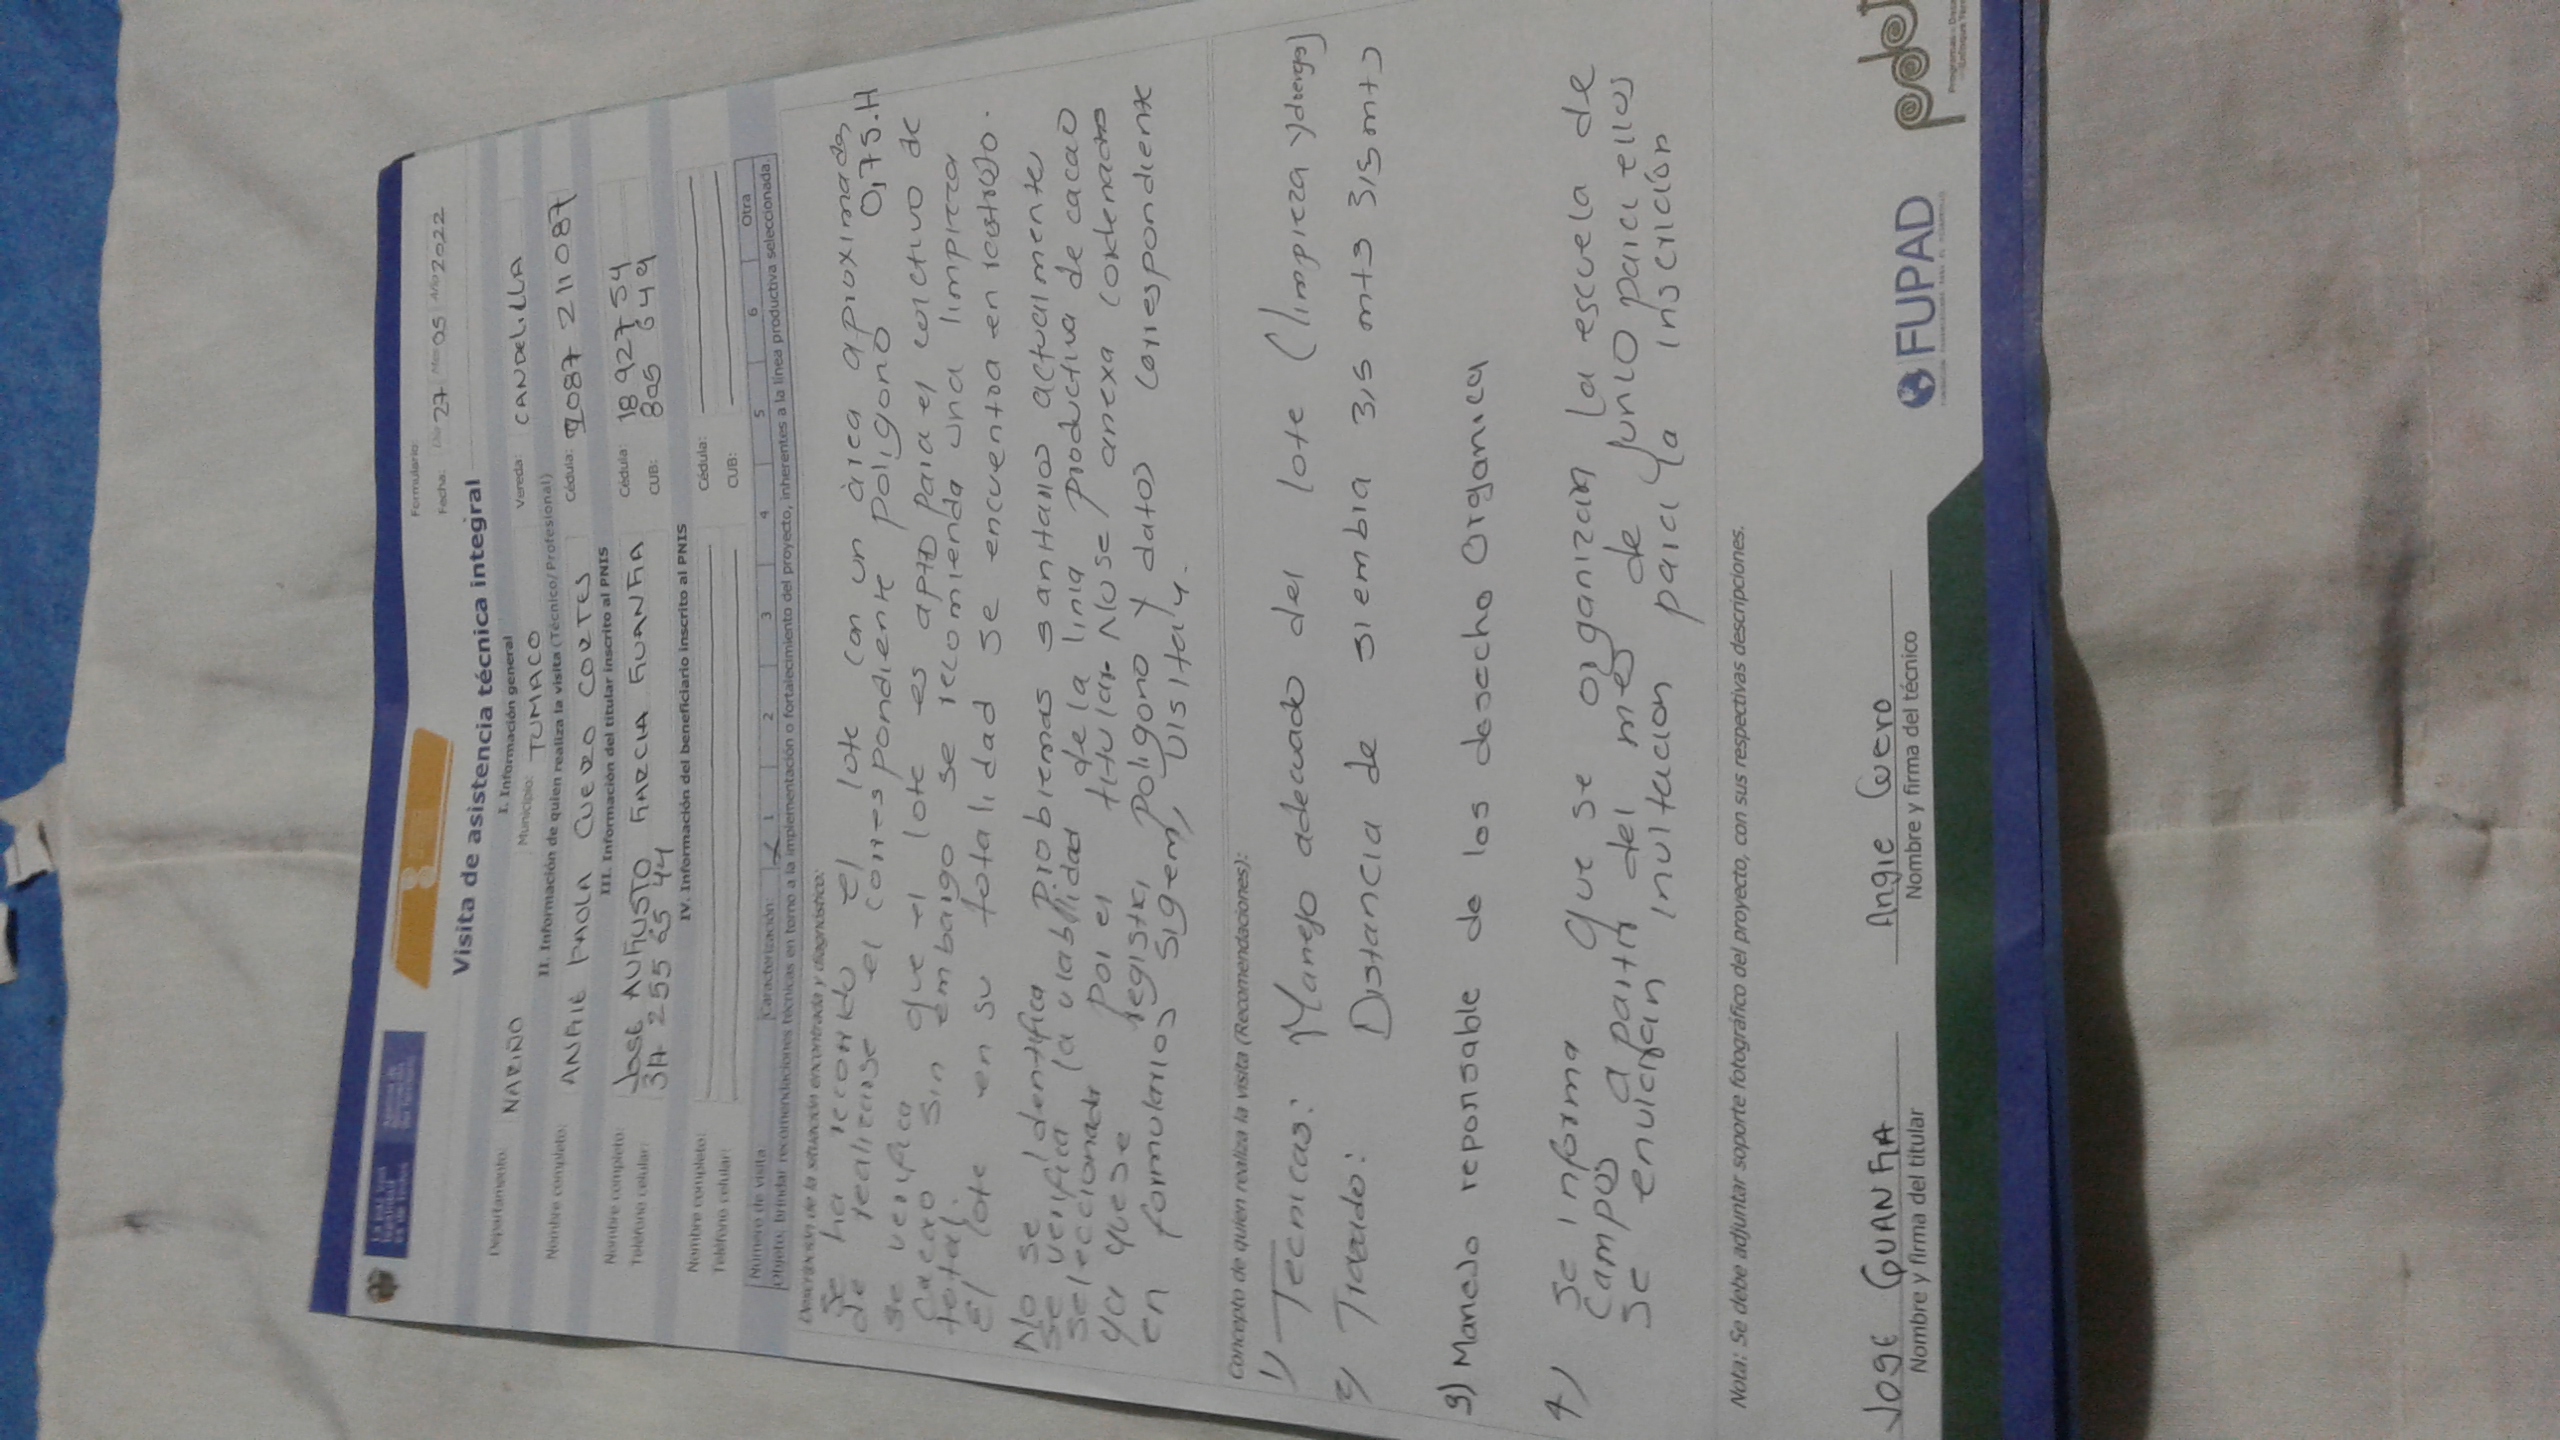 Formulario:
Fecha: Día 27 Mes 05 Año 2022
Visita de asistencia técnica integral
I. Información general
Departamento: NARIÑO Municipio: TUMACO Vereda: CANDELILLA
II. Información de quien realiza la visita (Técnico/Profesional)
Nombre completo: ANGIE PAOLA CUERO CORTES Cédula: 1087 211 087
III. Información del titular inscrito al PNIS
Nombre completo: JOSE AUGUSTO GARCIA GUANGA Cédula: 18 927 54
Teléfono celular: 317 255 65 44 CUB: 805 649
IV. Información del beneficiario inscrito al PNIS
Nombre completo: Cédula:
Teléfono celular: CUB:
Número de visita Caracterización: X 1 2 3 4 5 6 Otra
Objeto: brindar recomendaciones técnicas en torno a la implementación o fortalecimiento del proyecto, inherentes a la línea productiva seleccionada.
Descripción de la situación encontrada y diagnóstico:
Se ha recorrido el lote con un área aproximada
de realizarse el correspondiente poligono 0,75.H
se verifica que el lote es apto para el coctivo de
Cacao sin embargo se recomienda una limpieza
total.
El lote en su totalidad se encuentra en rastrojo.
No se identifica problemas sanitario actualmente
se verifica la viabilidad de la linia productiva de cacao
seleccionada por el titular. No se anexa cordenadas
ya que se registra poligono y datos correspondiente
en formularios sigem, visita y.
Concepto de quien realiza la visita (Recomendaciones):
1) Tecnicas: Manejo adecuado del lote (limpieza y drenajes)
2) Trazado: Distancia de siembra 3,5 mts 3,5 mts
3) Manejo reponsable de los desecho Organica
4) Se informa que se organizan la escuela de
Campos a partir del mes de Junio para ellos
se enviaran invitacion para la inscrición
Nota: Se debe adjuntar soporte fotográfico del proyecto, con sus respectivas descripciones.
JOSE GUANGA Angie Cuero
Nombre y firma del titular Nombre y firma del técnico
FUPAD pdet